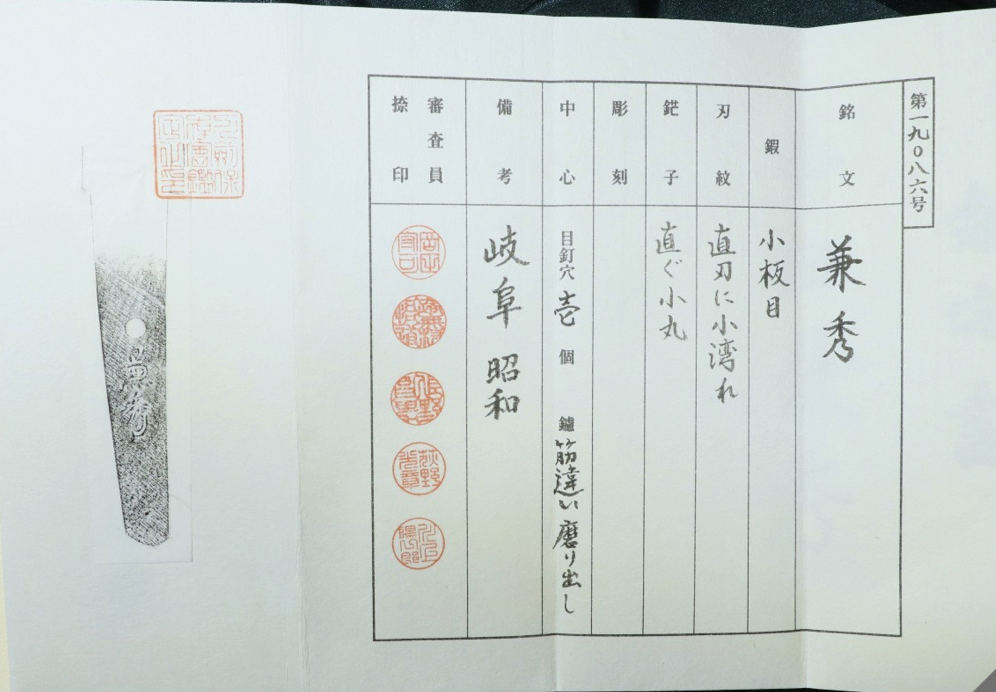 第一九〇八六号
銘文
兼秀
鍜
小板目
刃紋
直刃に小湾れ
鋩子
直ぐ小丸
彫刻
中心
目釘穴 壱 個 鑢 筋違い磨り出し
備考
岐阜 昭和
審査員
捺印
兼秀